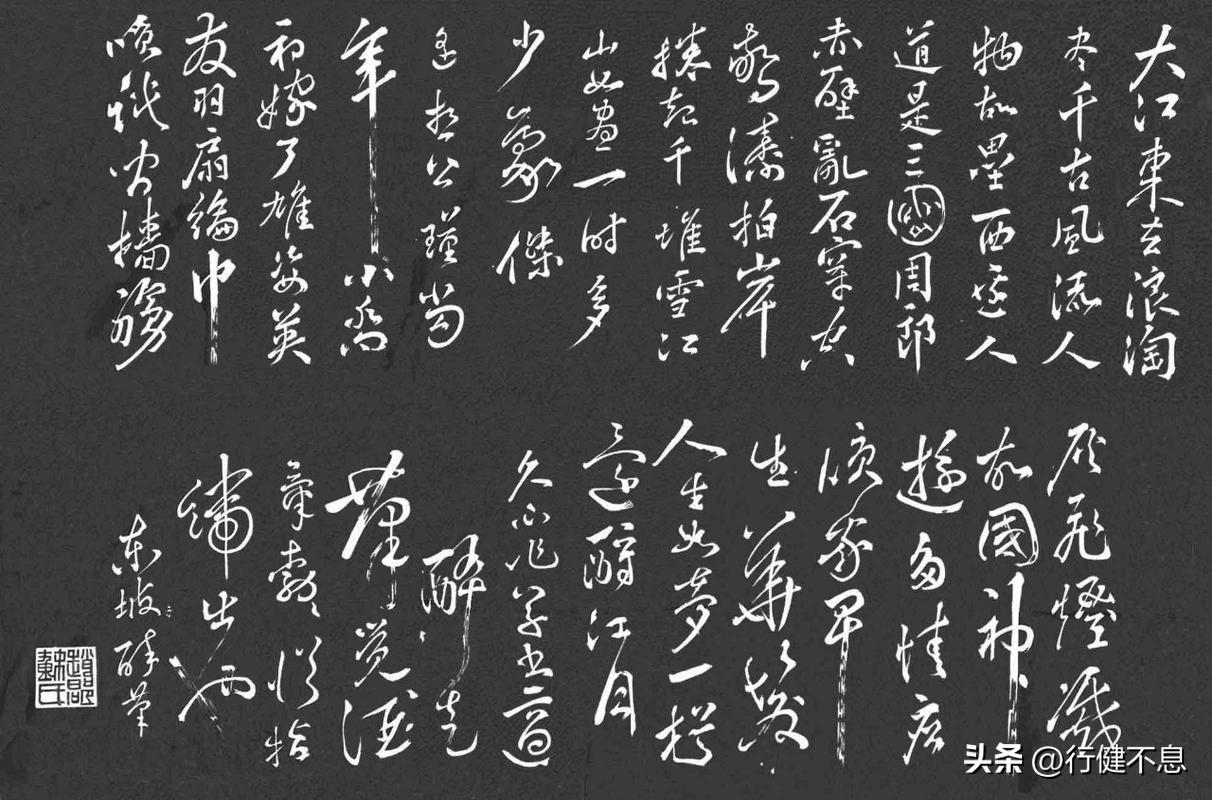 大江東去浪淘
尽千古風流人
物故壘西邊人
道是三國周郎
赤壁亂石穿空
驚濤拍岸
捲起千堆雪江
山如畫一时多
少豪傑
遥想公瑾當
年小喬
初嫁了雄姿英
友羽扇綸巾
間檣
灰飛煙滅
故國神
遊多情應
笑我早
生華髮
人生如夢一樽
還酹江月
久不作草书適
醉走
筆覺酒
氣勃勃從指
端出也
東坡醉筆
趙郡蘇氏
头条 @行健不息